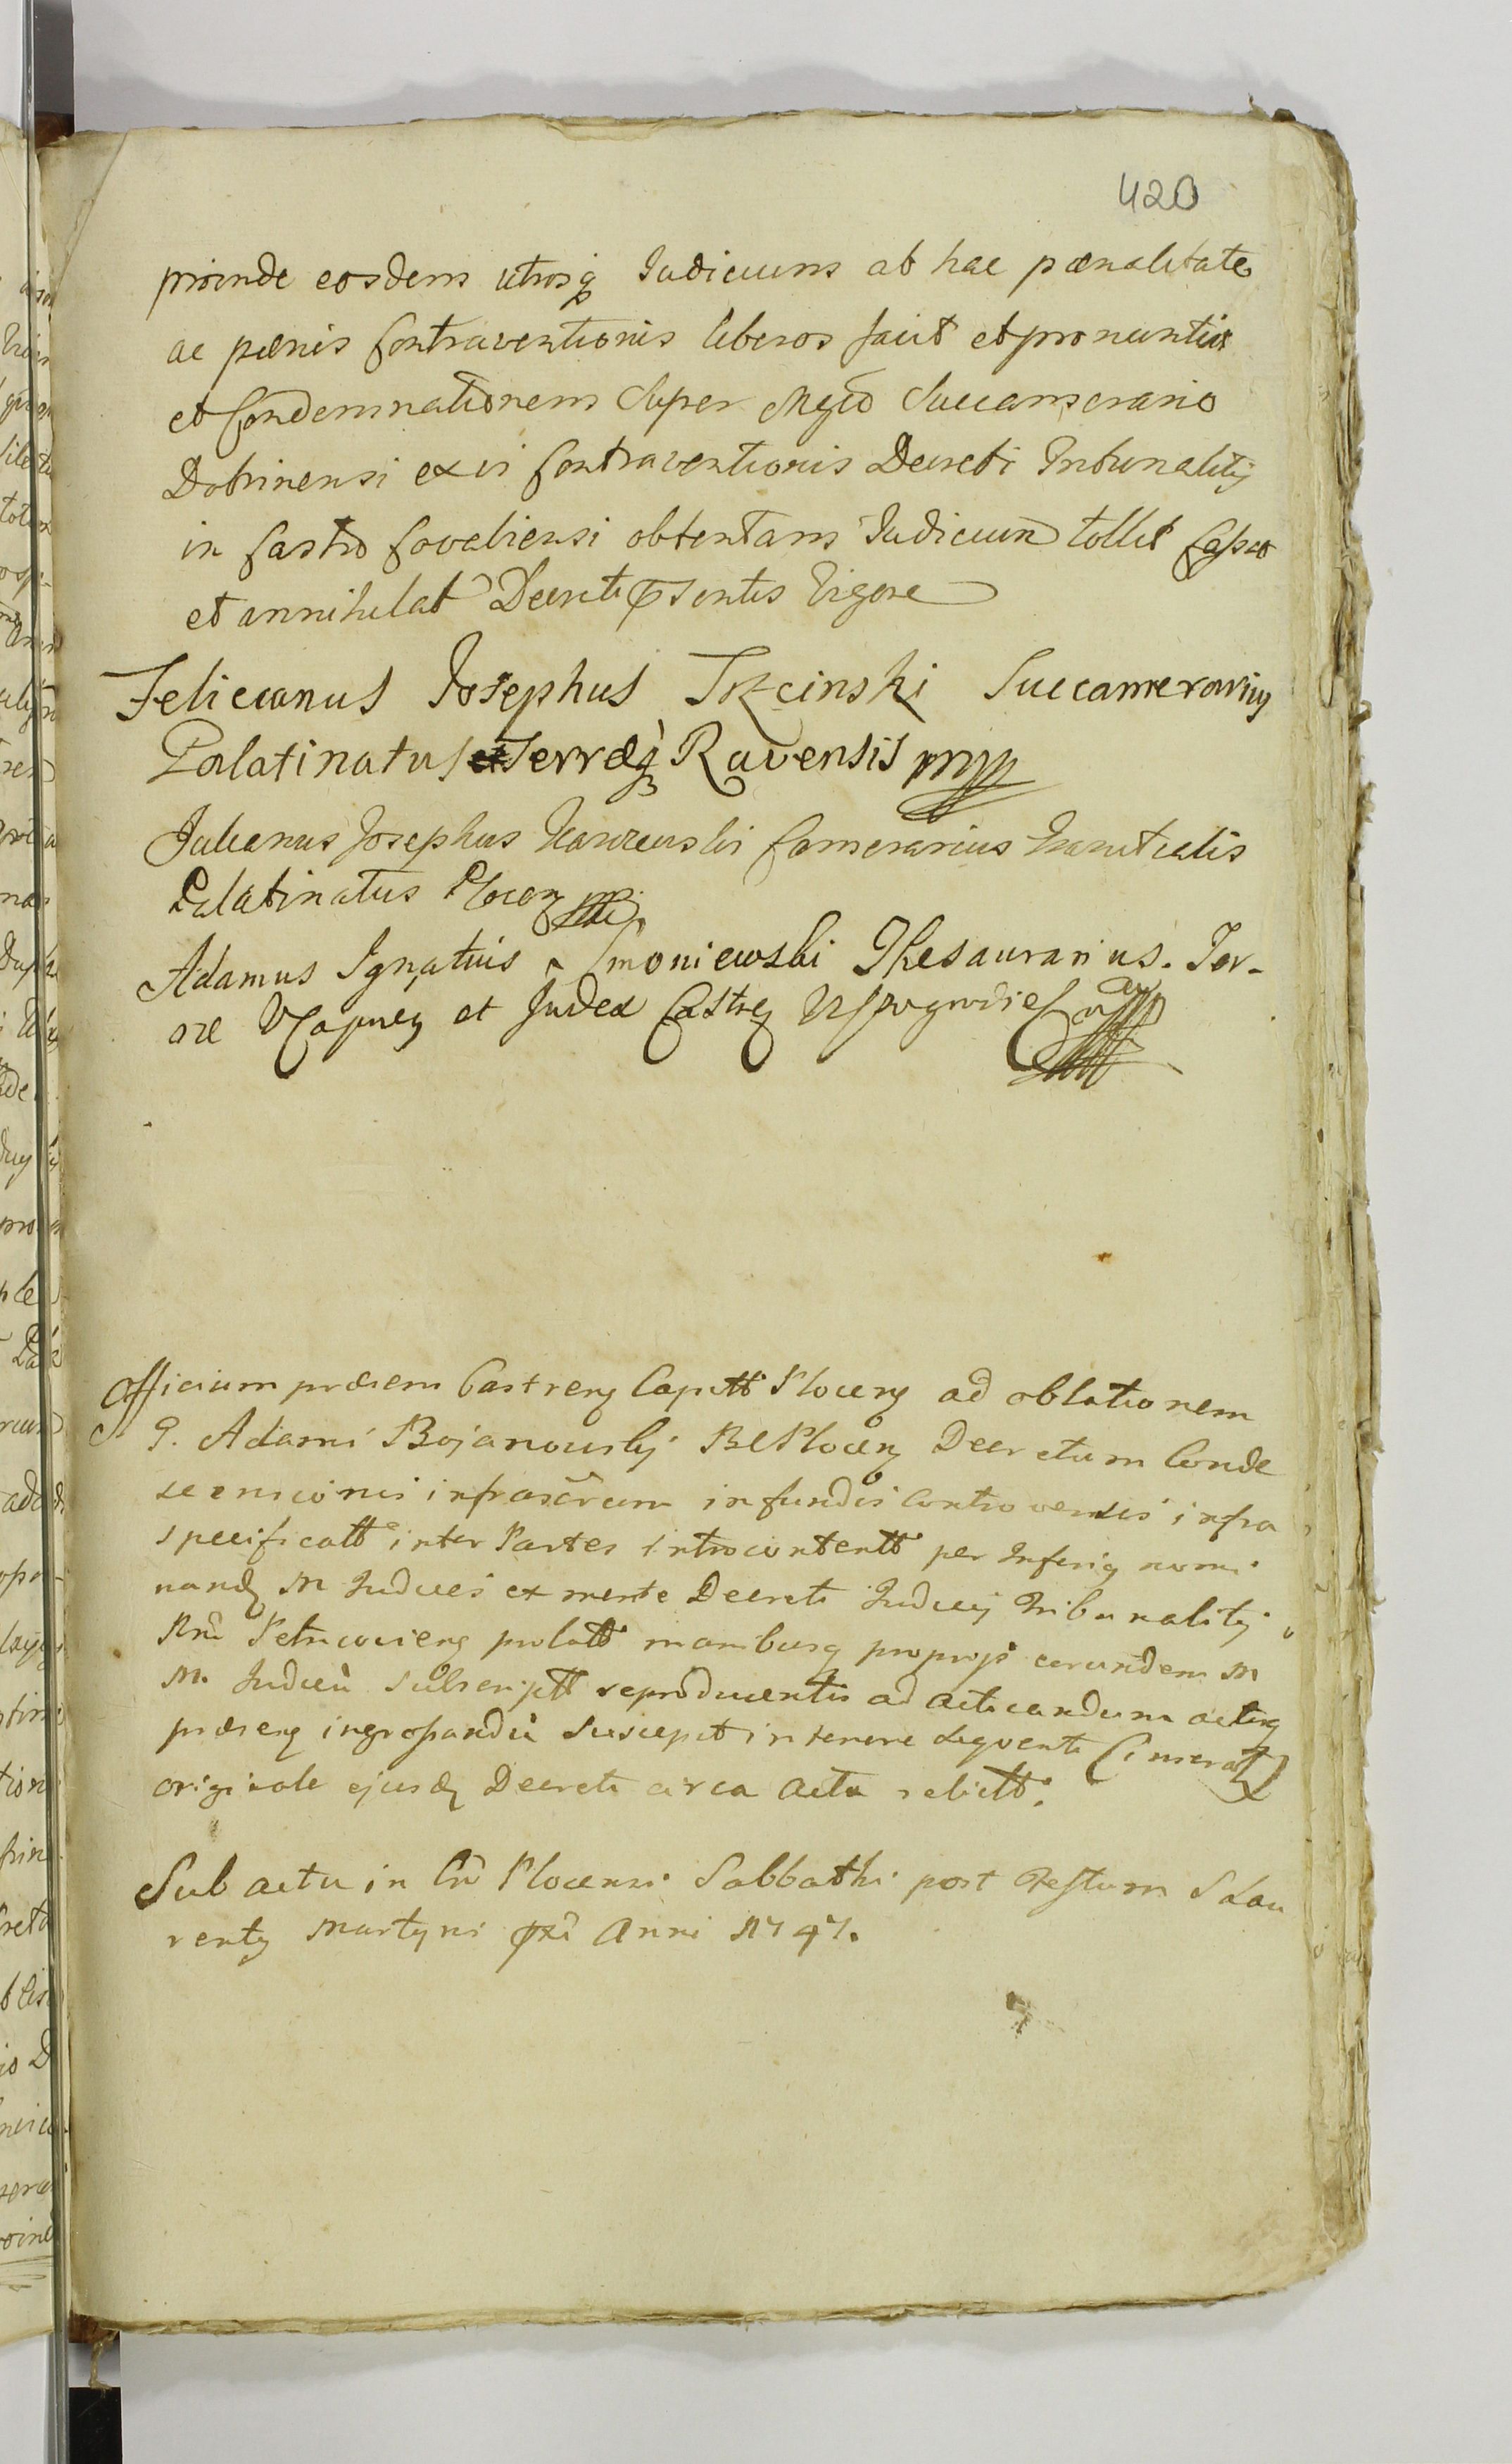 420
proinde eosdem utrosq Judicium ab hac pœnalitate
ac pœnis Contraventionis liberos facit et pronuntiat
et Condemnationem super Mgco Succamerario
Dobrinensi ex vi Contraventionis Decreti Tribunalitij
in Castro Covaliensi obtentam Judicium tollit Cassat
et annihilat Decreti psentis Vigore
Felicianus Josephus Trzcinski Succamerarius
Palatinatus Terræq Ravensis mpp
Julianus Josephus Camerarius Granitialis
Palatinatus Plocen mp
Adamus Ignatius a Smoniewski Thesaurarius. Ter-
ræ et Judex Castren
Officium præsens Castren Capitt Plocen ad oblationem
G. Adami Bojanowskj Plocen Decretum Conde
scensionis infrascrum in fundis Controversis infra
specificatt inter Partes introcontentt per Inferiq nomi
nand M Judices ex mente Decreti Judicij Tribunalitij
Rni Petricovien prolatt manibusq proprijs eorundem M
M. Judicu Subscriptt reproducentis ad acticandum actisq
præsen ingrossandu suscepit in tenore sequenti
originale ejusd Decreti circa Acta relictt.
Sub actu in Cro Plocensi Sabbathi post Festum S Lau
rentij Martyris pxi Anni 1747.